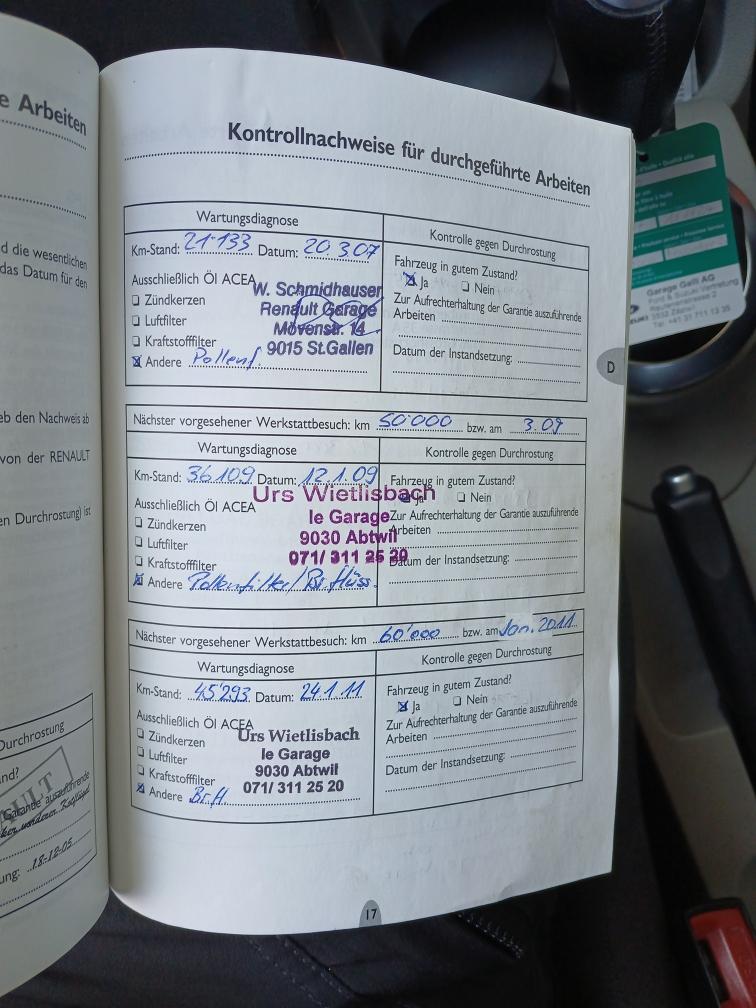 e Arbeiten
d die wesentlichen
das Datum für den
eb den Nachweis ab
von der RENAULT
en Durchrostung) ist
Durchrostung
nd?
Garantie auszuführende
ung: 18-12-05
Kontrollnachweise für durchgeführte Arbeiten
Wartungsdiagnose
Kontrolle gegen Durchrostung
Km-Stand: 21'133 Datum: 20.3.07
Fahrzeug in gutem Zustand?
Ja Nein
Ausschließlich Öl ACEA
Zündkerzen
Luftfilter
Kraftstofffilter
Andere Pollenf.
W. Schmidhauser
Renault Garage
Mövenstr. 14
9015 St.Gallen
Zur Aufrechterhaltung der Garantie auszuführende
Arbeiten
Datum der Instandsetzung:
Nächster vorgesehener Werkstattbesuch: km 50'000 bzw. am 3.09
Wartungsdiagnose
Kontrolle gegen Durchrostung
Km-Stand: 36'109 Datum: 12.1.09
Fahrzeug in gutem Zustand?
Ja Nein
Ausschließlich Öl ACEA
Zündkerzen
Luftfilter
Kraftstofffilter
Andere Pollenfilter/Br.flüss.
Urs Wietlisbach
le Garage
9030 Abtwil
071/ 311 25 20
Zur Aufrechterhaltung der Garantie auszuführende
Arbeiten
Datum der Instandsetzung:
Nächster vorgesehener Werkstattbesuch: km 60'000 bzw. am Jan. 2011
Wartungsdiagnose
Kontrolle gegen Durchrostung
Km-Stand: 45'293 Datum: 24.1.11
Fahrzeug in gutem Zustand?
Ja Nein
Ausschließlich Öl ACEA
Zündkerzen
Luftfilter
Kraftstofffilter
Andere Br.fl.
Urs Wietlisbach
le Garage
9030 Abtwil
071/ 311 25 20
Zur Aufrechterhaltung der Garantie auszuführende
Arbeiten
Datum der Instandsetzung:
17
D
Garage Galli AG
Ford & Suzuki Vertretung
3532 Zäziwil
Tel. +41 31 711 13 35